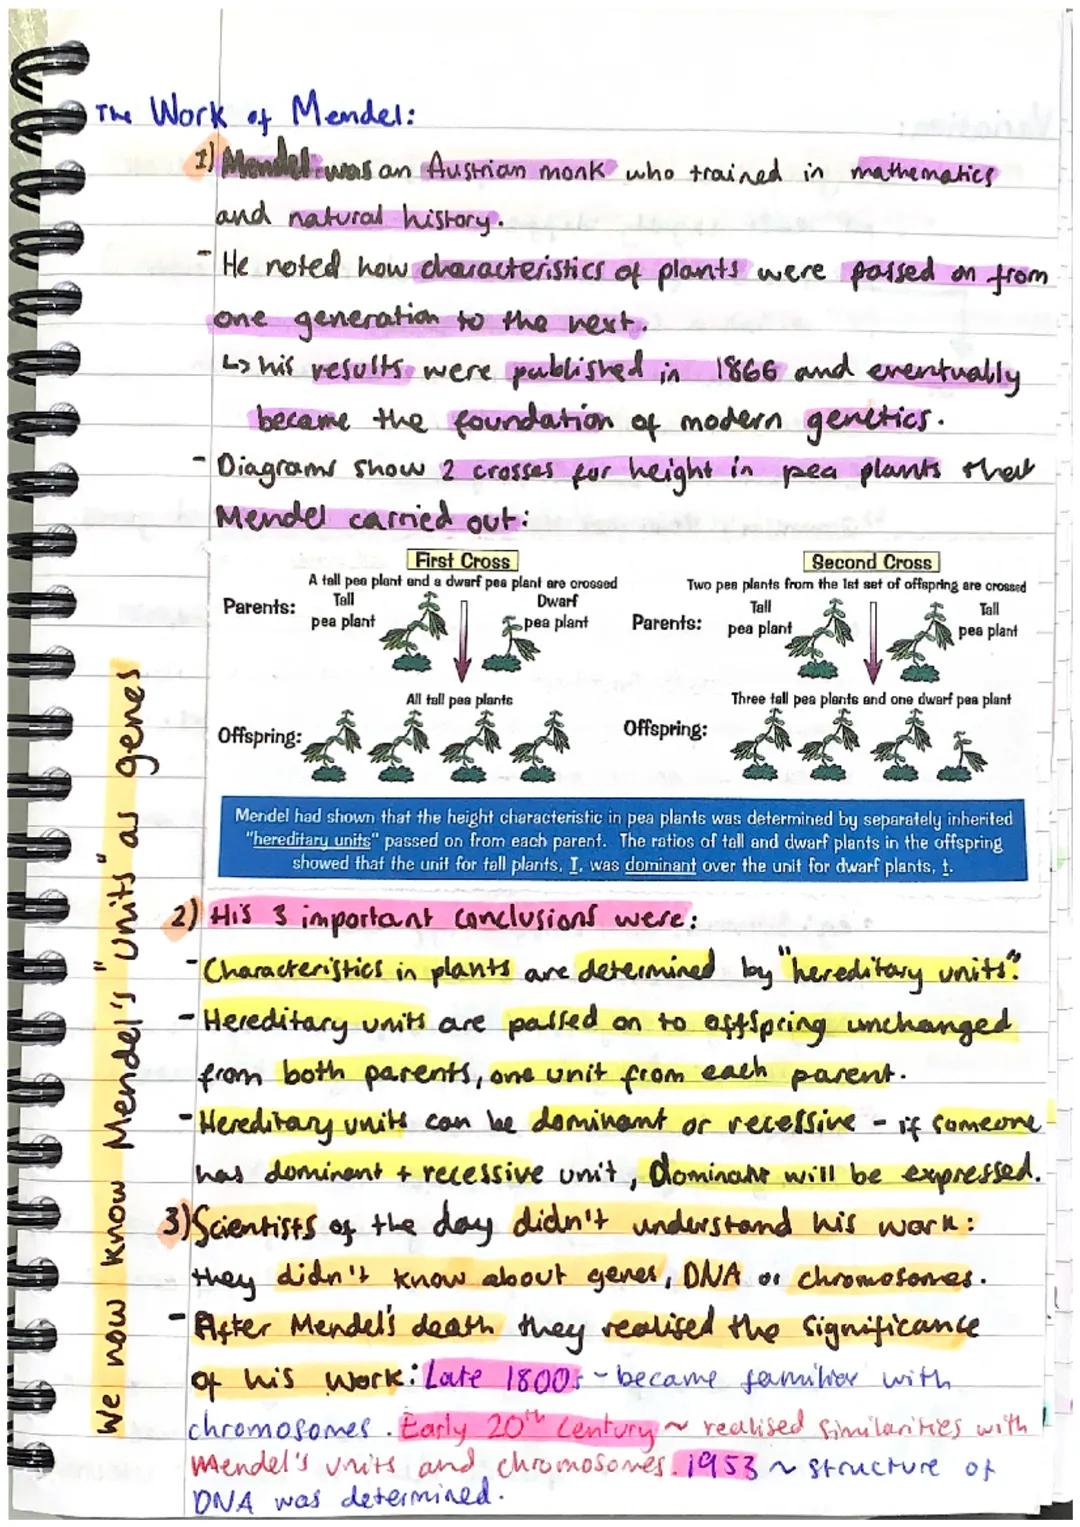 The Work of Mendel:
1) Mendel was an Austrian monk who trained in mathematics
and natural history.
- He noted how characteristics of plants were passed on from
one generation to the next.
↳ his results were published in 1866 and eventually
became the foundation of modern genetics.
- Diagrams show 2 crosses for height in pea plants that
Mendel carried out:
First Cross
A tall pea plant and a dwarf pea plant are crossed
Parents:
Tall
pea plant
Dwarf
pea plant
All tall pea plants
Offspring:
Second Cross
Two pea plants from the 1st set of offspring are crossed
Parents:
Tall
pea plant
Tall
pea plant
Three tall pea plants and one dwarf pea plant
Offspring:
Mendel had shown that the height characteristic in pea plants was determined by separately inherited
"hereditary units" passed on from each parent. The ratios of tall and dwarf plants in the offspring
showed that the unit for tall plants, T, was dominant over the unit for dwarf plants, t.
2) His 3 important conclusions were:
- Characteristics in plants are determined by "hereditary units".
- Hereditary units are passed on to offspring unchanged
from both parents, one unit from each parent.
- Hereditary units can be dominant or recessive - if someone
has dominant + recessive unit, dominant will be expressed.
3) Scientists of the day didn't understand his work:
they didn't know about genes, DNA or chromosomes.
- After Mendel's death they realised the significance
of his work: Late 1800s - became familiar with
chromosomes. Early 20th Century ~ realised similarities with
Mendel's units and chromosomes. 1953 ~ structure of
DNA was determined.
We now know Mendel's "units" as genes